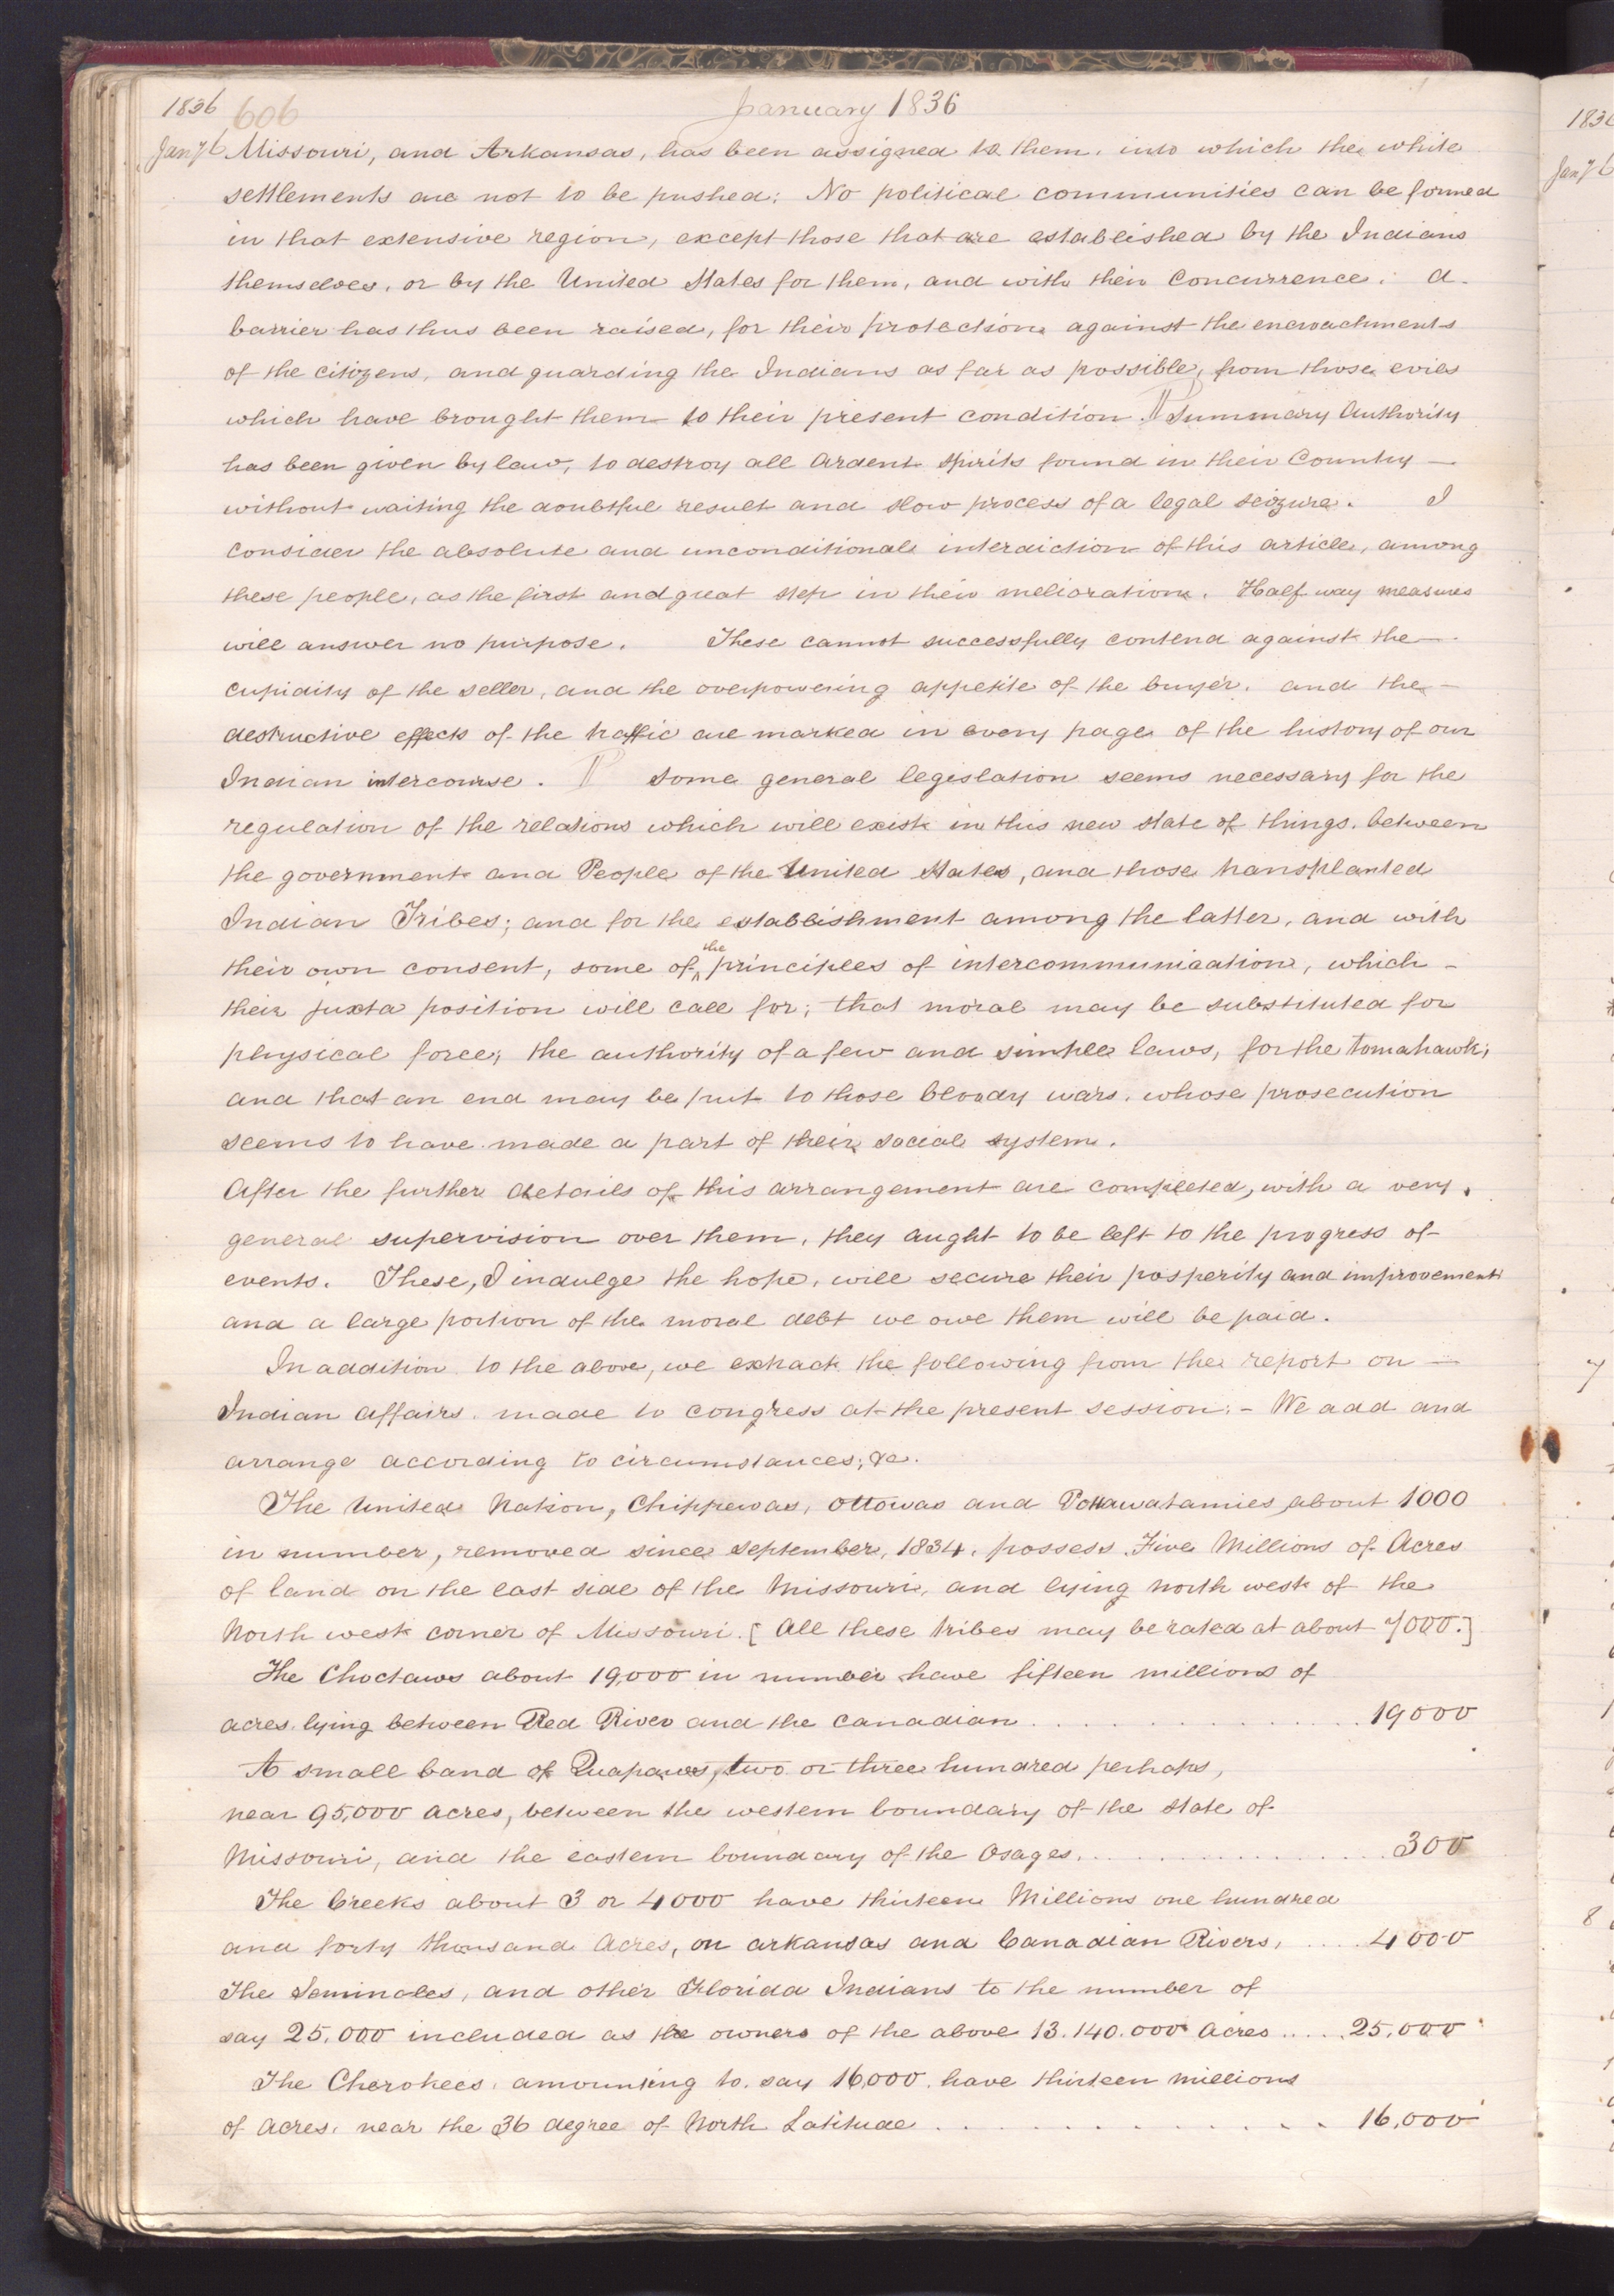 1836 606 January 1836
Jany 6 Missouri, and Arkansas, has been assigned to them. into which the white
settlements are not to be pushed; No political communities can be formed
in that extensive region, except those that are established by the Indians
themselves, or by the United States for them, and with their Concurrence. A
barrier has thus been raised, for their protection against the encroachments
of the citizens, and guarding the Indians as far as possible, from those evils
which have brought them to their present condition. ¶ Summary Authority
has been given by law, to destroy all Ardent Spirits found in their Country —
without waiting the doubtful result and slow process of a legal seizure. I
consider the absolute and unconditional interdiction of this article, among
these people, as the first and great step in their melioration. Half way measures
will answer no purpose. These cannot successfully contend against the —
cupidity of the seller, and the overpowering appetite of the buyer. and the —
destructive effects of the traffic are marked in every page of the history of our
Indian intercourse. ¶ Some general legislation seems necessary for the
regulation of the relations which will exist in this new state of things. between
the government and People of the United States, and those transplanted
Indian Tribes; and for the establishment among the latter, and with
their own consent, some of ^the principles of intercommunication, which –
their juxta position will call for; that moral may be substituted for
physical force; the authority of a few and simple laws, for the Tomahawk;
and that an end may be put to those bloody wars. whose prosecution
seems to have made a part of their social system.
After the further details of this arrangement are completed, with a very
general supervision over them, they aught to be left to the progress of
events. These, I indulge the hope, will secure their prosperity and improvement
and a large portion of the moral debt we owe them will be paid.
In addition to the above, we extract the following from the report on —
Indian Affairs. made to congress at the present session: – We add and
arrange according to circumstances; &c.
The United Nation, Chippewas, Ottowas and Pottawatamies about 1000
in number, removed since September, 1834, possess Five Millions of Acres
of land on the east side of the Missouri, and lying north west of the
North west corner of Missouri. [All these tribes may be rated at about 7000.]
The Choctaws about 19,000 in number have fifteen millions of
acres lying between Red River and the Canadian . . . . . . . . . . . 19000
A small band of Quapaws, two or three hundred perhaps,
near 95,000 acres, between the western boundary of the State of
Missouri, and the eastern boundary of the Osages. . . . . . . . . . . 300
The Creeks about 3 or 4000 have thirteen Millions one hundred
and forty thousand Acres, on Arkansas and Canadian Rivers, . . . . 4000
The Seminoles, and other Florida Indians to the number of
say 25,000 included as the owners of the above 13.140.000 Acres . . . . . 25,000
The Cherokees, amounting to say 16,000. have thirteen millions
of Acres, near the 36 degree of North Latitude . . . . . . . . . . 16,000
1836
Jany 6
7
8